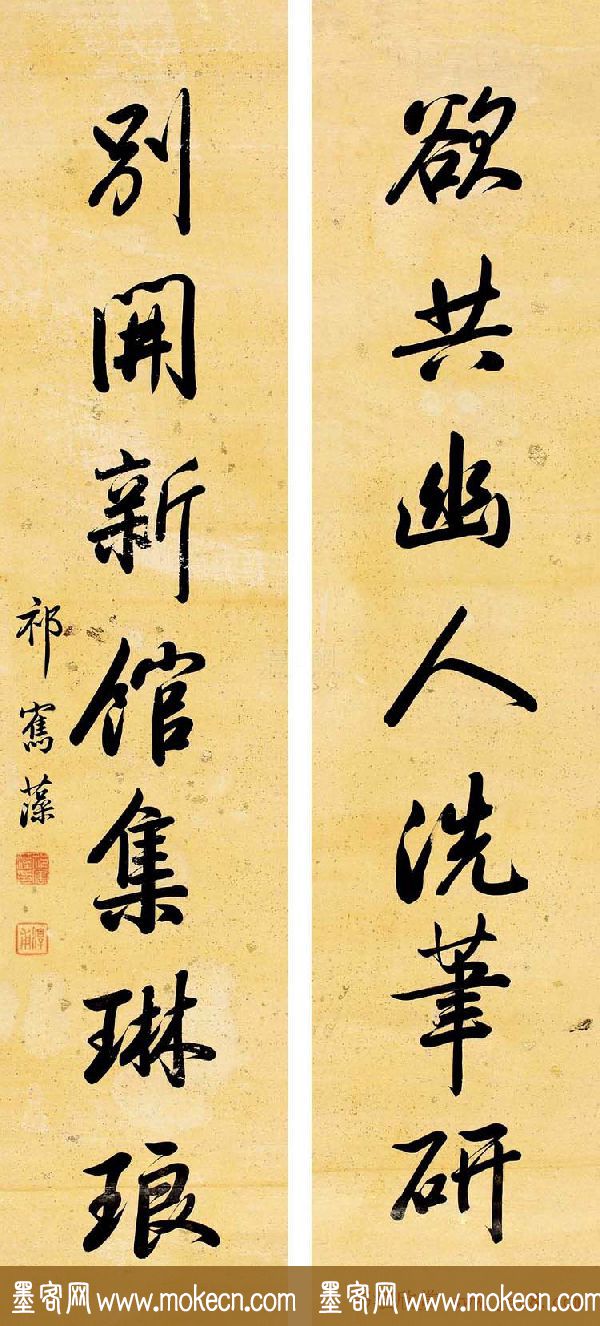 欲共幽人洗筆研
別開新館集琳琅
祁寯藻
墨客网 www.mokecn.com
墨客网 www.mokecn.com